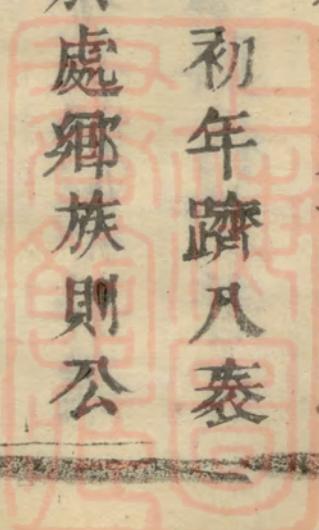 初年躋八袠
處鄉族則公